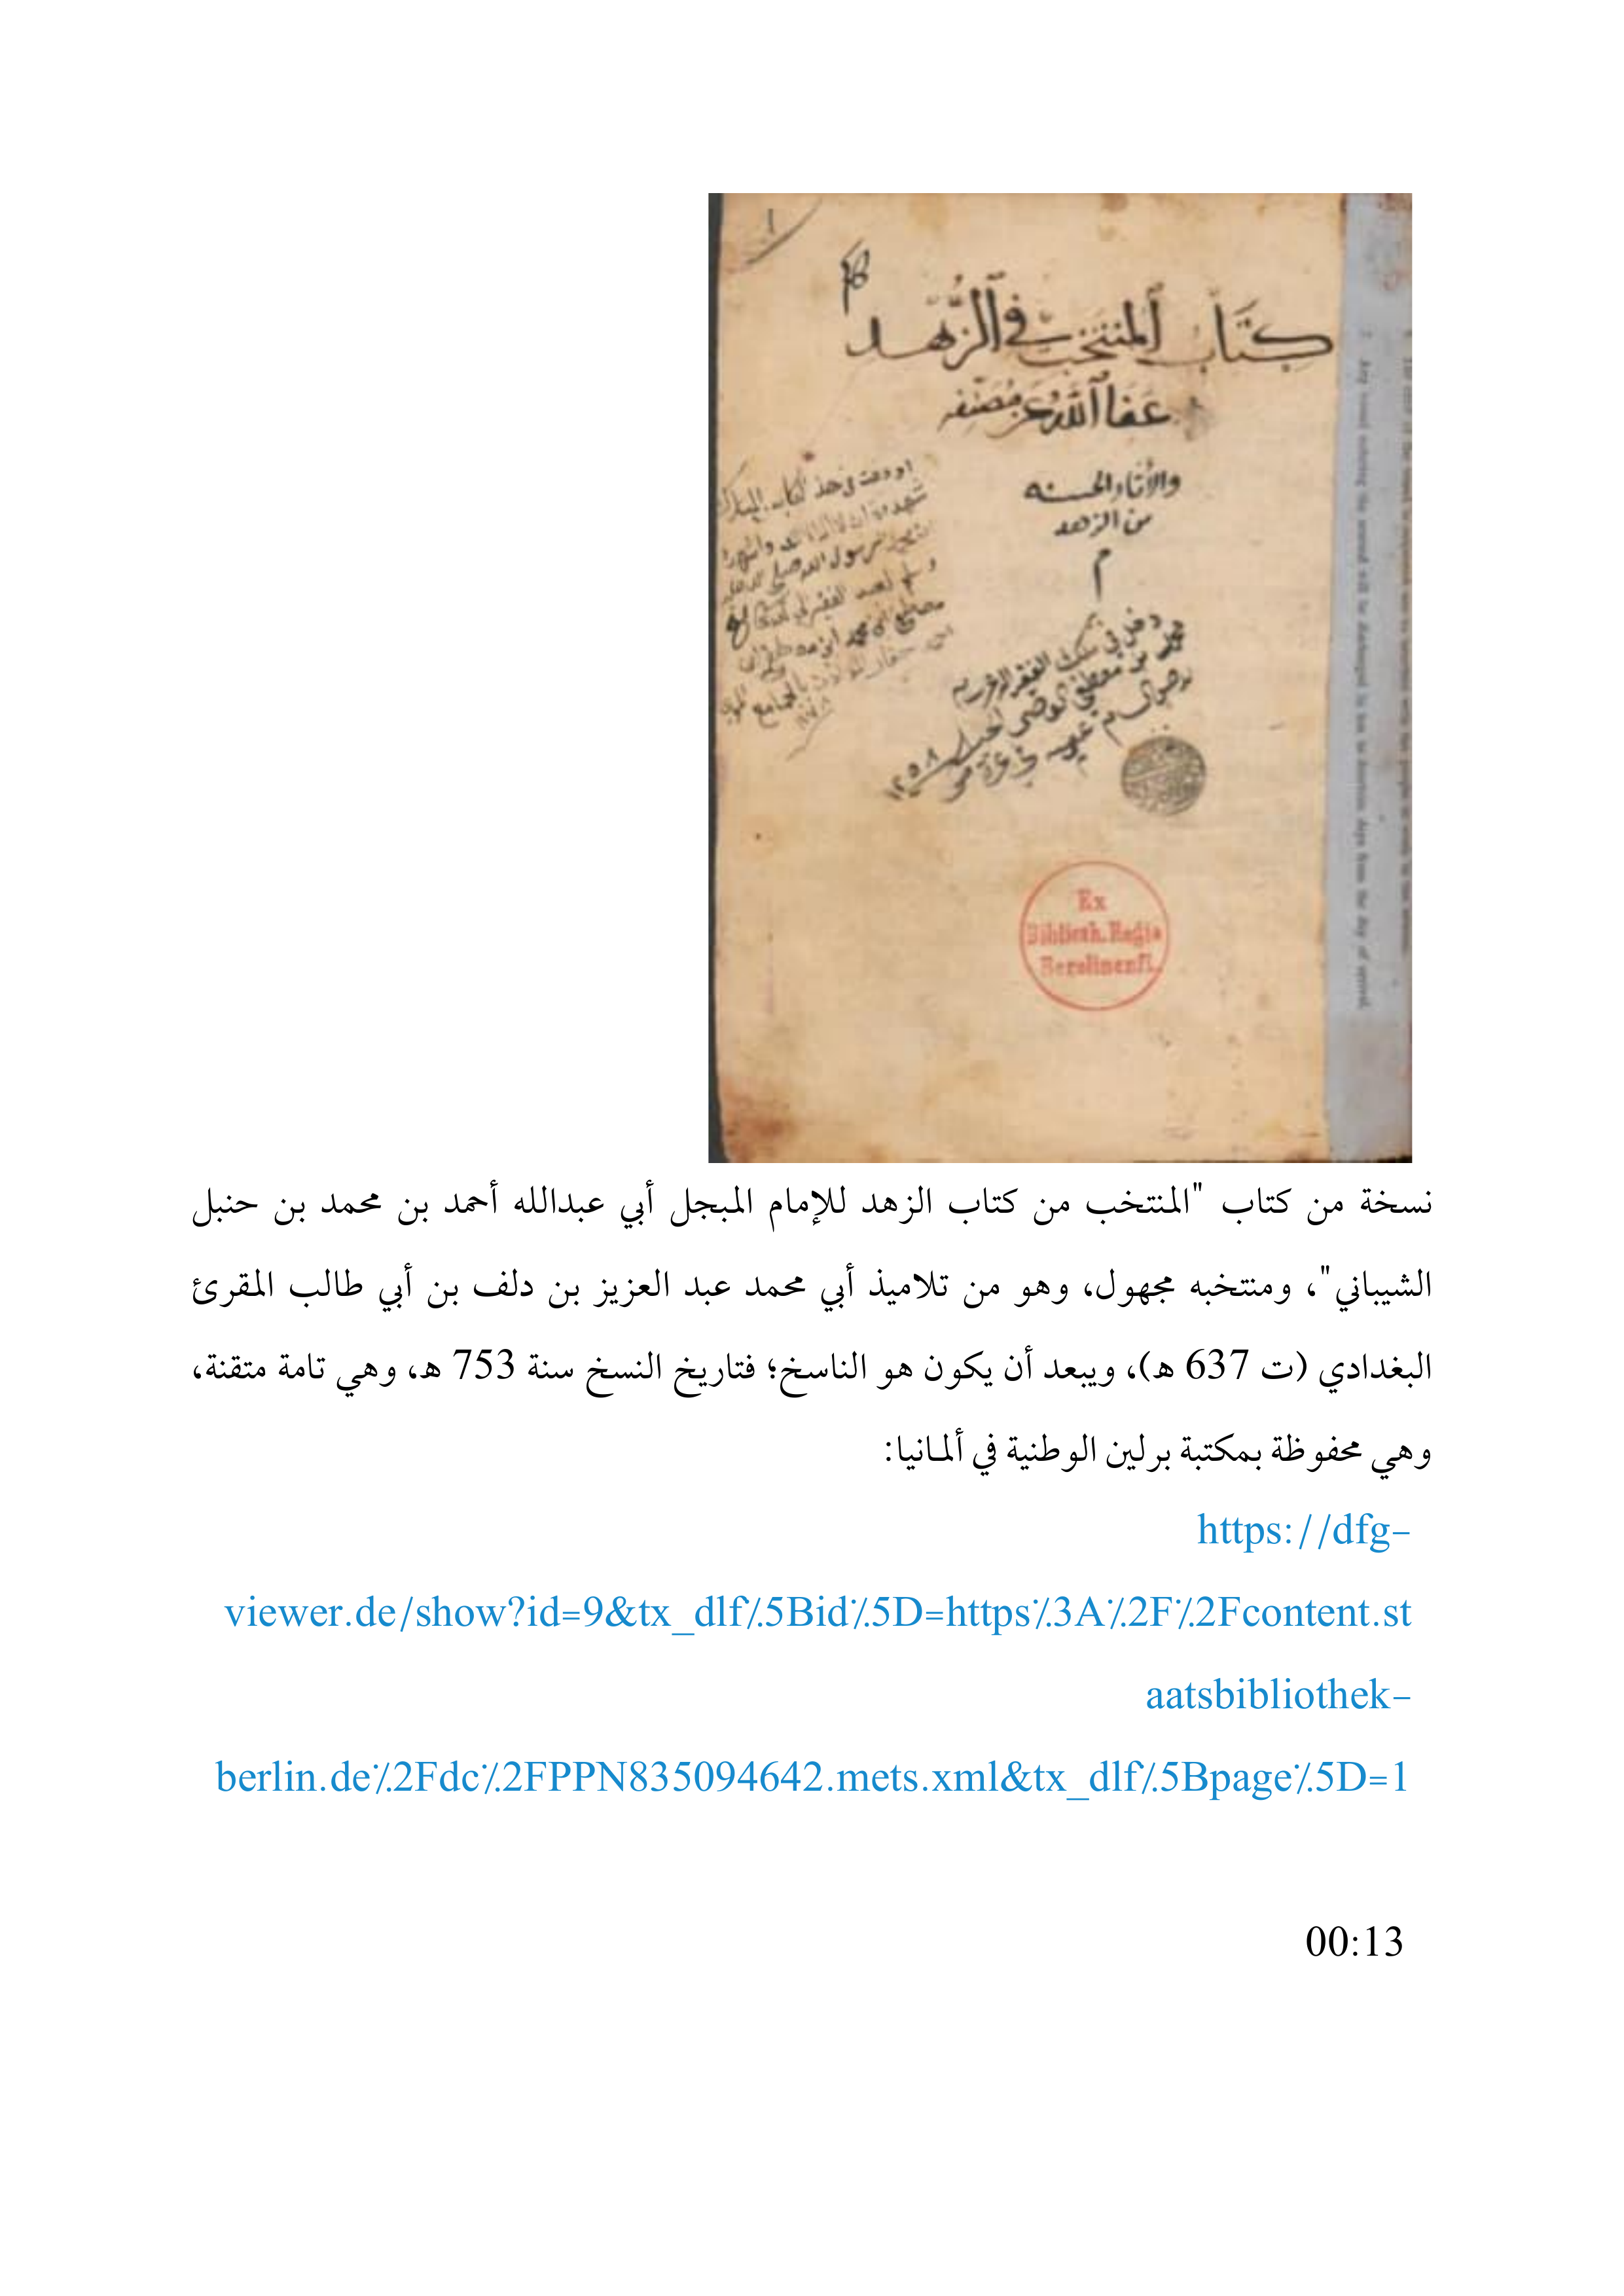 كتاب المنتخب في الزهد
عفا الله عن مصنفه
والآثار الحسنه
من الزهد
م
١٢٥٨
Ex
Biblioth. Regia
Berolinenſi.
نسخة من كتاب "المنتخب من كتاب الزهد للإمام المبجل أبي عبدالله أحمد بن محمد بن حنبل
الشيباني"، ومنتخبه مجهول، وهو من تلاميذ أبي محمد عبد العزيز بن دلف بن أبي طالب المقرئ
البغدادي (ت 637 ه)، ويبعد أن يكون هو الناسخ؛ فتاريخ النسخ سنة 753 ه، وهي تامة متقنة،
وهي محفوظة بمكتبة برلين الوطنية في ألمـانيا:
https://dfg-
viewer.de/show?id=9&tx_dlf٪5Bid٪5D=https٪3A٪2F٪2Fcontent.st
aatsbibliothek-
berlin.de٪2Fdc٪2FPPN835094642.mets.xml&tx_dlf٪5Bpage٪5D=1
00:13